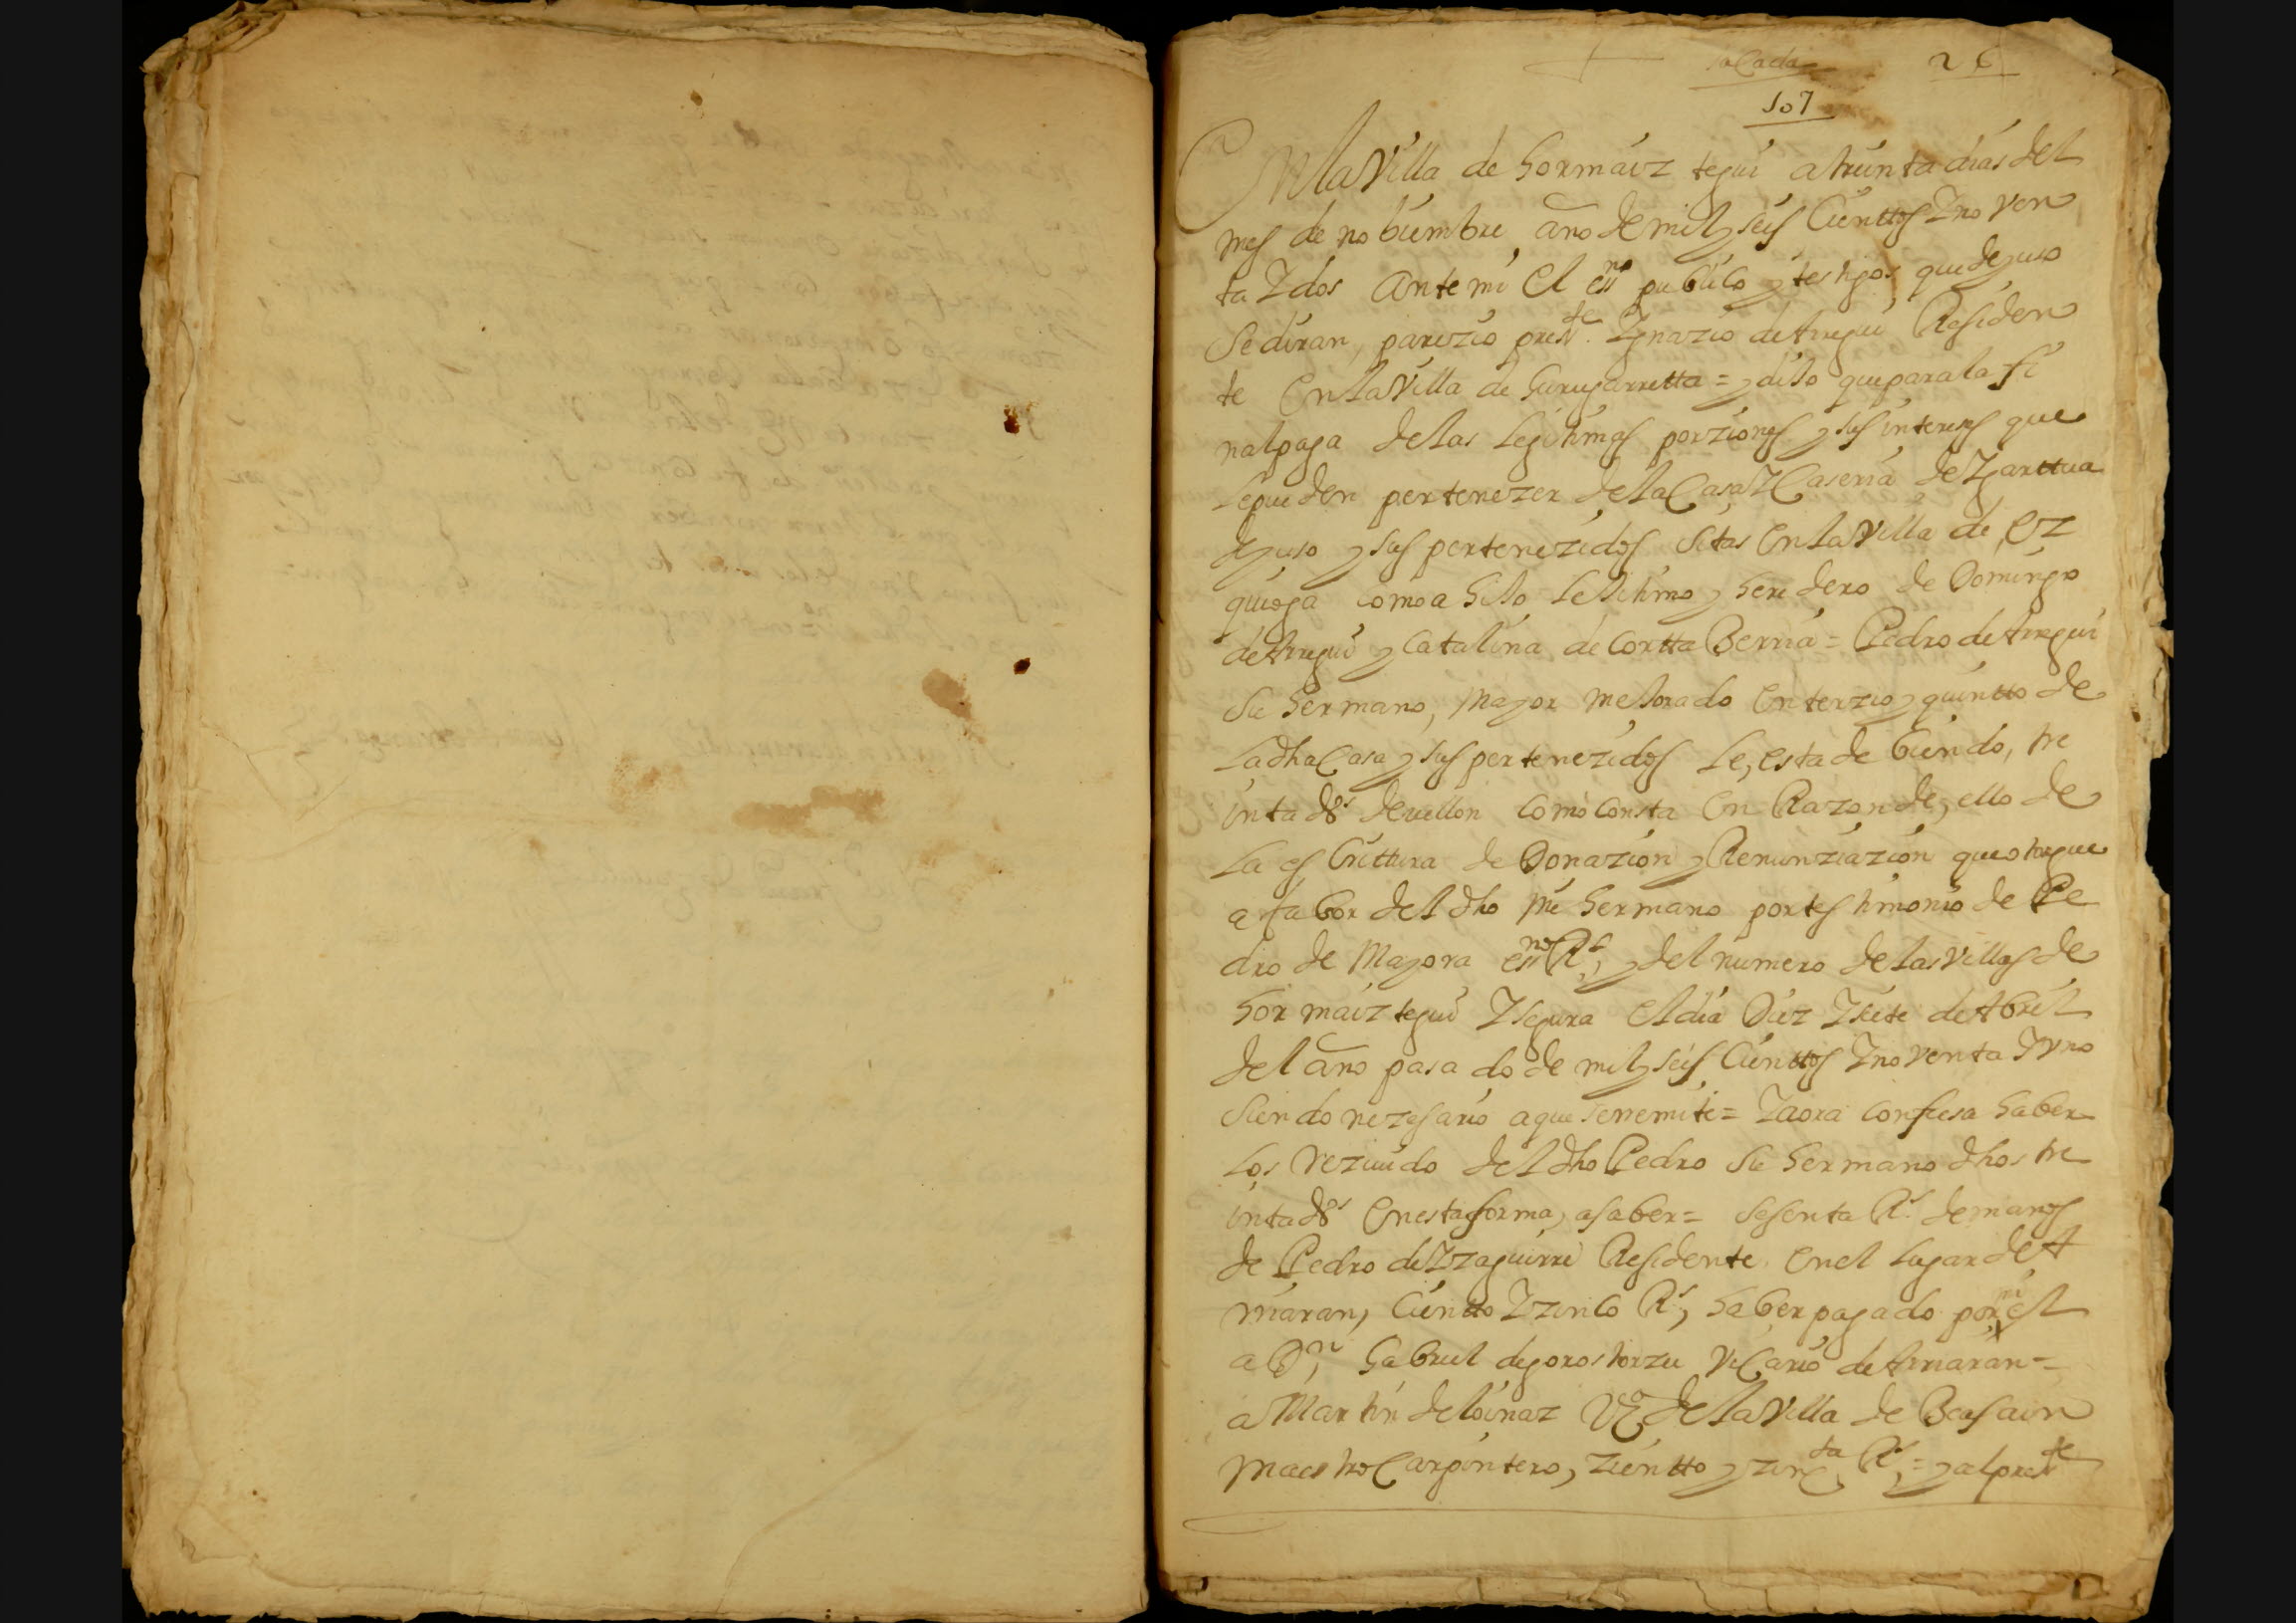 sacada
26
107
En la Villa de hormaiztegui a treinta dias del
mes de nobiembre año de mil y seis Cienttos Y no ven
ta Y dos Ante mi El essno publico y testigos que de yuso
Se diran, parezio presste Ygnazio de Arregui Residen
te En la Villa de Gurugarretta = y dijo que para la fi
nal paga de las Legitimas porziones y sus intereses que
le pueden pertenezer de la Casa Y Caseria de Ygarttua
de yuso y sus pertenezidos sitas En la Villa de, Ez
quioga como a hijo lejitimo y heredero de Domingo
de Arregui y Catalina de CorttaBerria = Pedro de Arregui
Su hermano, Mayor mejorado En terzio y quintto de
La dha Casa y sus pertenezidos Le, esta debiendo, tre
inta ds de vellon como consta En Razon de, ello de
La escrittura de Donazion y Renunziazion que otorgue
a fabor del dho mi hermano por testimonio de Pe
dro de Mayora essno Rl, y del numero de las villas de
hormaiztegui Y segura El dia Diez Y siete de Abril
del año pasado de mil y seis Cienttos Y noventa Y vno
Siendo nezesario a que se rremite = Y aora confiesa haber
los rezivido del dho Pedro Su hermano dhos tre
inta ds En esta forma, a saber = sesenta Rs de manos
de Pedro de Yzaguirre Residente En el lugar de A
rriaran, Cientto Y zinco Rs, haber pagado por mi el
a Dn, Gabriel de gorostorzu Vicario de Arriaran =
a Martin de loinaz Vzo de la Villa de Beasain
maestro Carpintero, zientto y zincta Rs, = y al presste